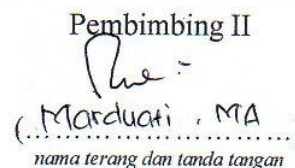 Pembimbing II
( Marduati , MA
nama terang dan tanda tangan